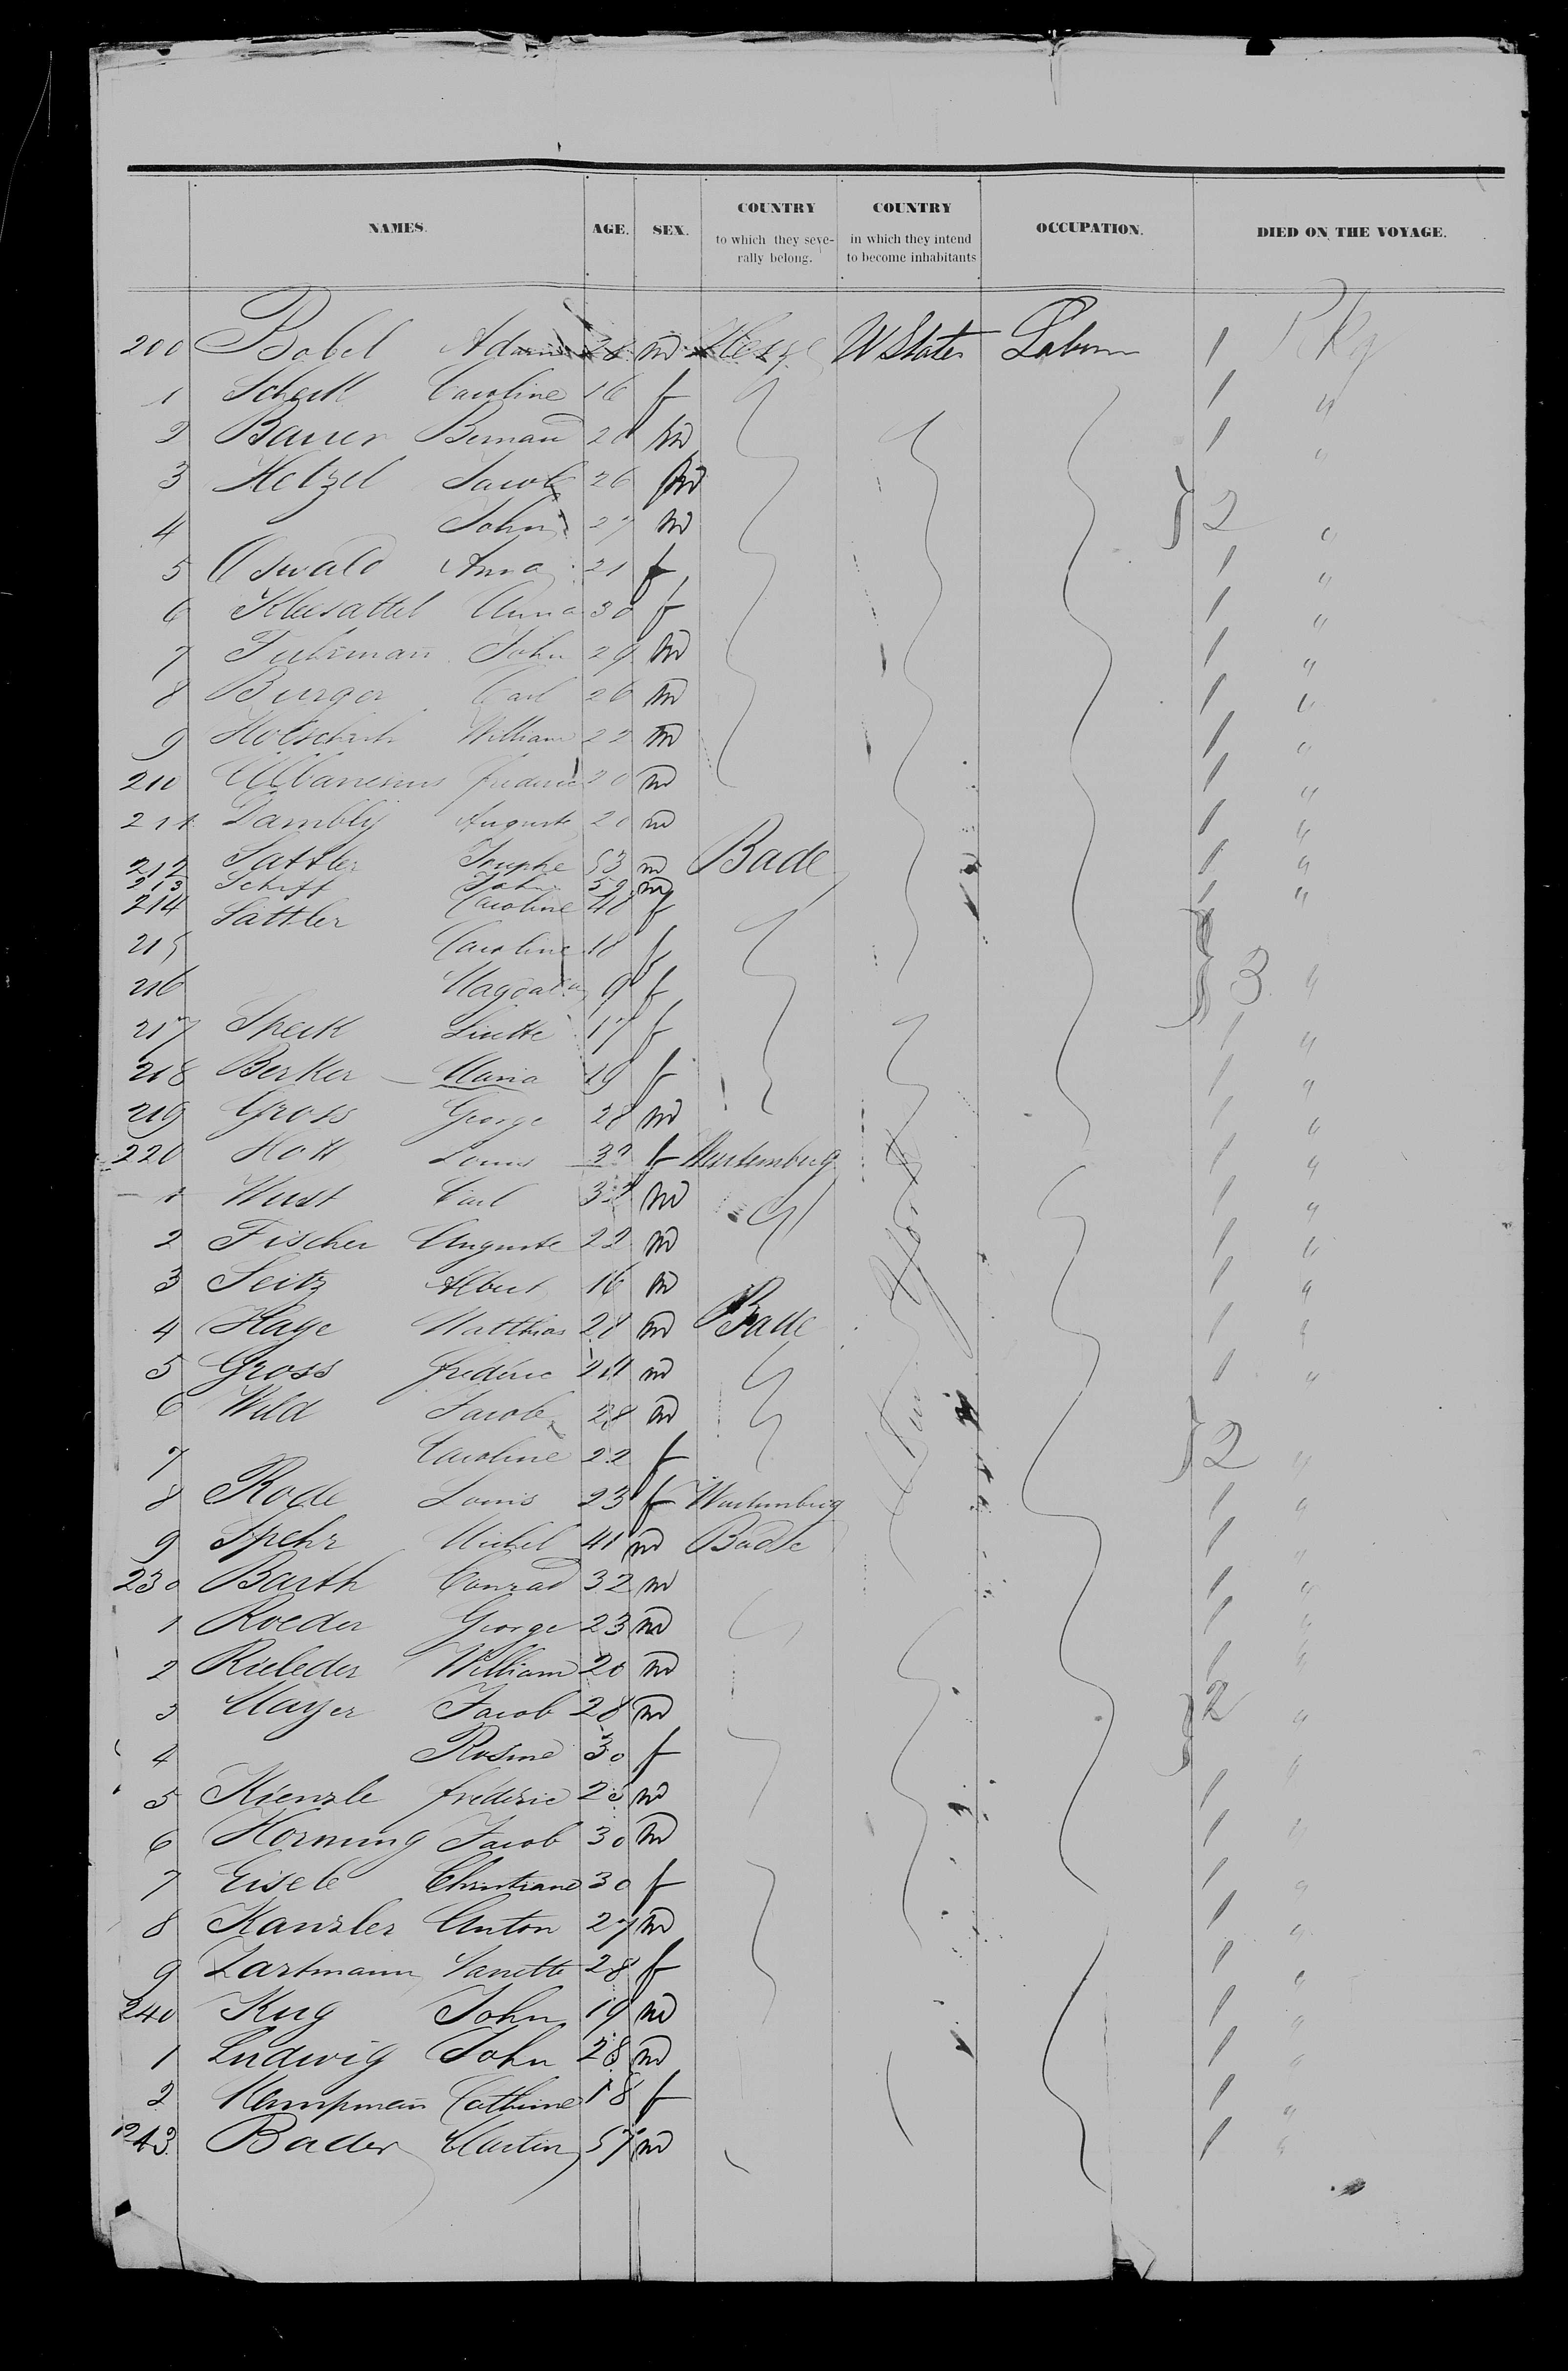 NAMES. AGE. SEX. COUNTRY to which they severally belong. COUNTRY in which they intend to become inhabitants OCCUPATION. DIED ON THE VOYAGE.
200 Bobel Adam 28 m W States 1 Pkg
1 Caroline 16 f 1 "
2 Bauer 20 m 1 "
3 Hetzel Jacob 26 m } 2
4 John 27 m "
5 Oswald Anna 21 f 1 "
6 Kleesattel Anna 30 f 1 "
7 Fuhrmañ John 29 m 1 "
8 Burger Carl 26 m 1 "
9 William 22 m 1 "
210 20 m 1 "
211 Dambly Auguste 20 m 1 "
212 Sattler 53 m Bade 1 "
213 Schiff John 52 m 1 "
214 Sattler Caroline 48 f
215 Caroline 18 f } 3 "
216 9 f
217 Speck 17 f 1 "
218 Berker Maria 19 f 1 "
219 Gross George 28 m 1 "
220 Kott Louis 32 f Wurtemburg 1 "
1 Wust Carl 32 m 1 "
2 Fischer Auguste 22 m 1 "
3 Seitz Albert 16 m 1 "
4 Haye Matthias 28 m Bade 1 "
5 Gross frederic 24 m 1 "
6 Wild Jacob 28 m } 2
7 Caroline 22 f "
8 Rode Louis 23 f Wurtemburg 1 "
9 Spehr Michel 41 m Bade 1 "
230 Barth Conrad 32 m 1 "
1 Roeder George 23 m 1 "
2 Rieleder William 20 m 1 "
3 Mayer Jacob 28 m } 2 "
4 Rosine 30 f "
5 Kienzle frederic 25 m 1
6 Hornung Jacob 30 m 1 "
7 Eisele Christiane 30 f 1 "
8 Kanzler Anton 27 m 1 "
9 Zartmann Nanette 28 f 1 "
240 Kug John 19 m 1 "
1 Ludwig John 28 m 1 "
2 Kempmañ Cathrine 18 f 1 "
243 Bader Martin 57 m 1 "